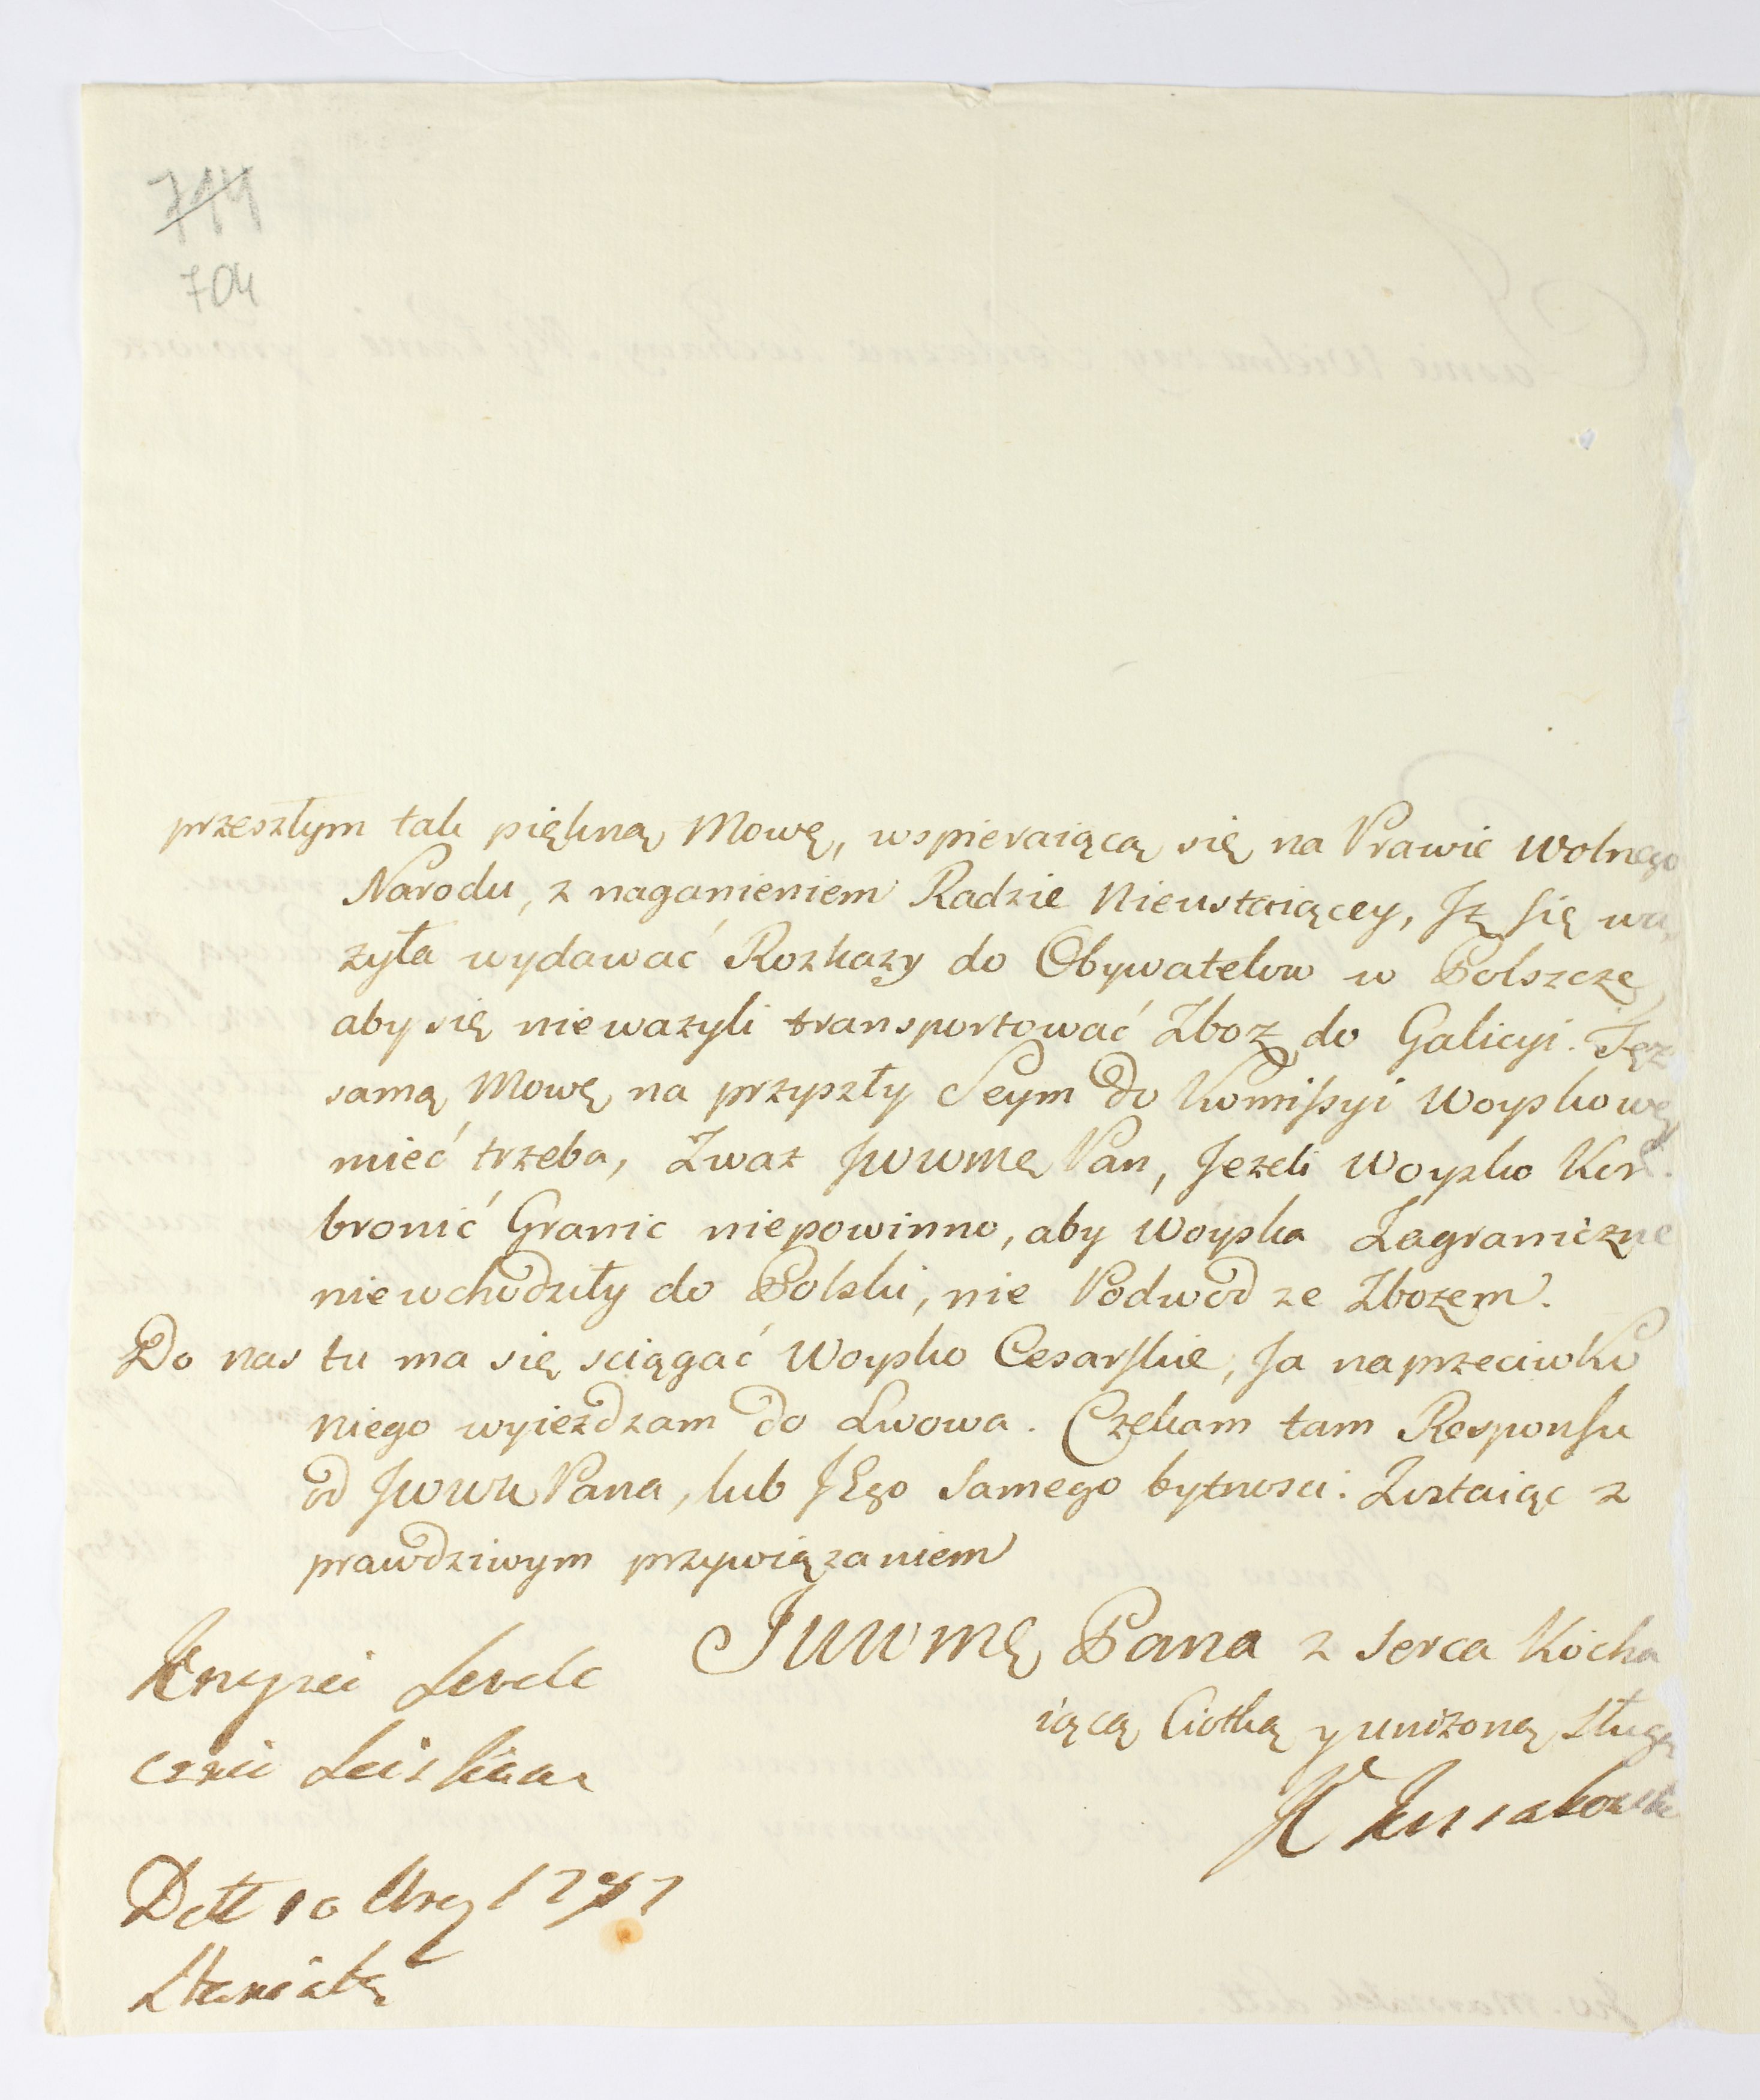 714
704
przeszłym tak piękną Mowę, wspieraiącą się na Prawie wolnego
Narodu, z naganieniem Radzie Nieustaiącey, Jż się wa„
żyła wydawać Rozkazy do Obywatelow w Polszcze,
aby się nieważyli transportować Zboż do Galicyi. Tęż
samą Mowę na przyszły Seym do Komissyi Woyskowey
mieć trzeba, Zważ JWWMę Pan, Jeżeli Woysko Kor.
bronić Granic niepowinno, aby Woyska Zagraniczne
niewchodziły do Polski, nie Podwod ze Zbożem.
Do nas tu ma się sciągać Woysko Cesarskie, Ja naprzeciwko
niego wyieżdzam do Lwowa. Czekam tam Responsu
od JWWM Pana, lub JEgo Samego bytnosci. Zostaiąc z
prawdziwym przywiązaniem
JWWMę Pana z serca Kocha
iącą Ciotką y uniżoną sługą
K
Dtt 10